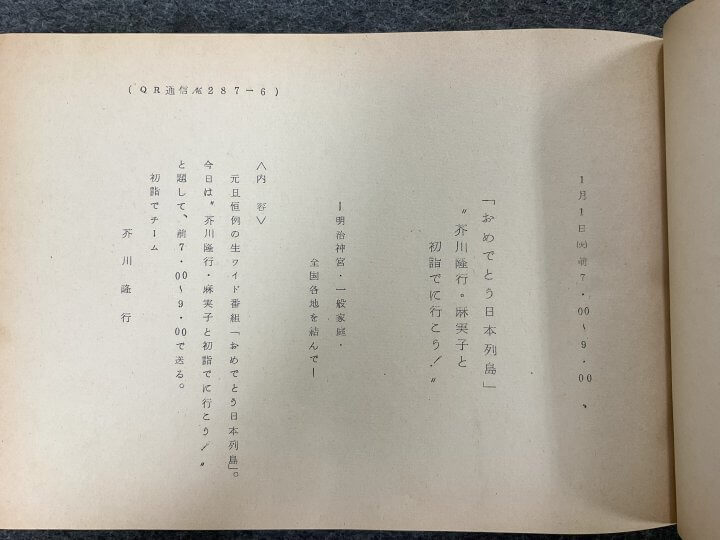 (QR通信№287-6)
1月1日(火)前7・00〜9・00
「おめでとう日本列島」
〝芥川隆行・麻実子と
初詣でに行こう!〟
ー明治神宮・一般家庭・
全国各地を結んでー
<内 容>
元旦恒例の生ワイド番組「おめでとう日本列島」。
今日は〝芥川隆行・麻実子と初詣でに行こう!〟
と題して、前7・00〜9・00で送る。
初詣でチーム
芥川隆行